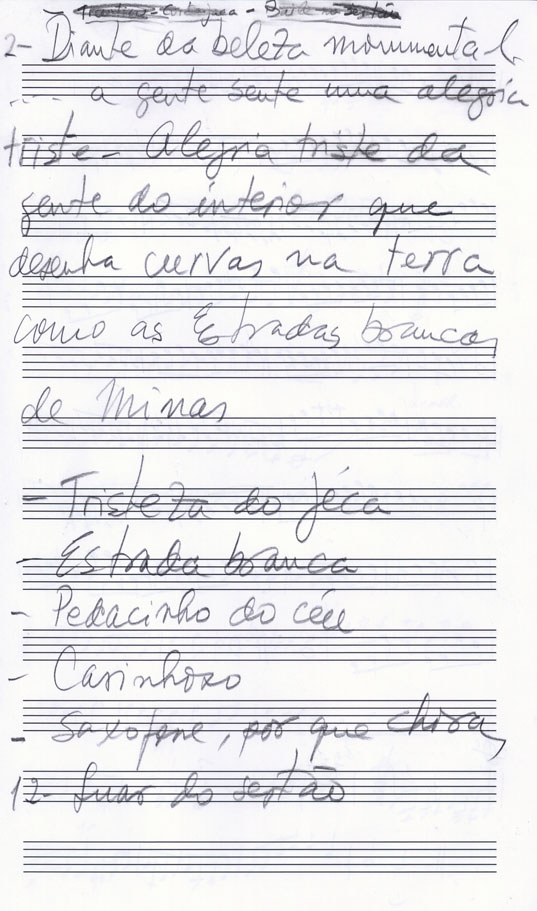 2- Diante da beleza monumental.
.... a gente sente uma alegria
triste - Alegria triste da
gente do interior que
desenha curvas na terra
como as Estradas brancas
de Minas
- Tristeza do jéca
- Estrada branca
- Pedacinho do céu
- Carinhoso
- Saxofone, por que choras
12- Luar do sertão